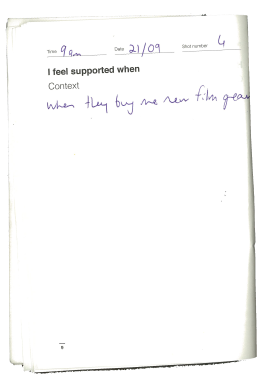 Time 9am Date 21/09 Shot number 4
I feel supported when
Context
when they buy me new film gear